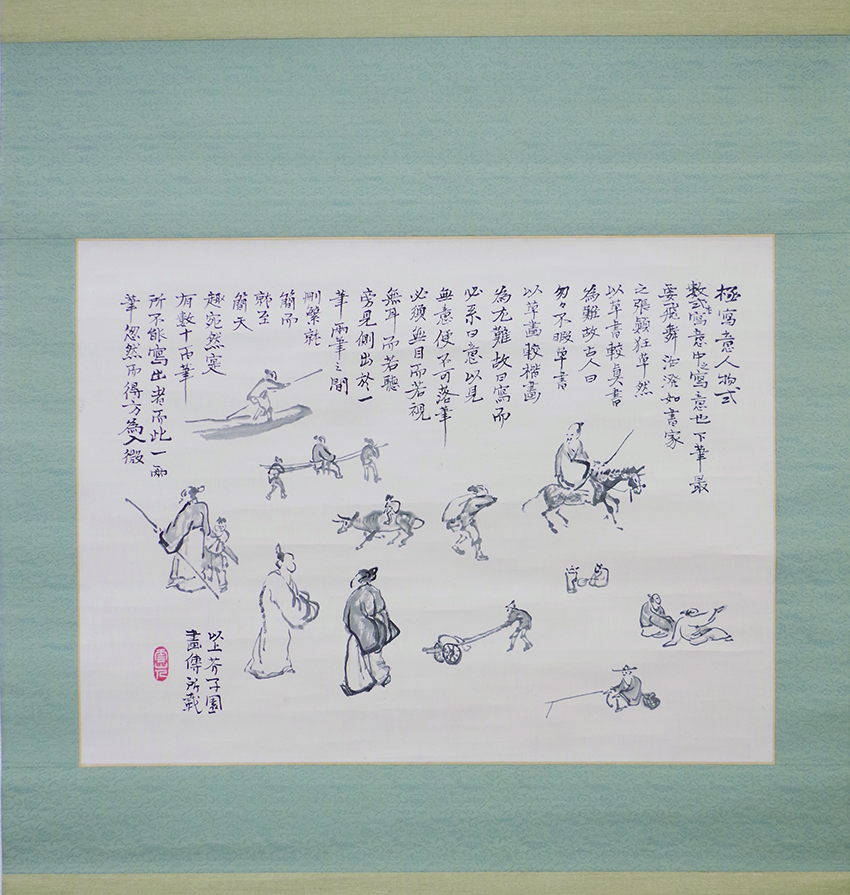 極寫意人物式
數式尤寫意中之寫意也下筆最
要飛舞活潑如書家
之張顛狂草然
以草書較真書
為難故古人曰
匆々不暇草書
以草畫較楷畫
為尤難故曰寫而
必系曰意以見
無意便不可落筆
必須無目而若視
無耳而若聽
旁見側出於一
筆兩筆之間
刪繁就
簡而
就至
簡天
趣宛然寔
有數十百筆
所不能寫出者而此一兩
筆忽然而得方為入微
以上芥子園
畫傳所載